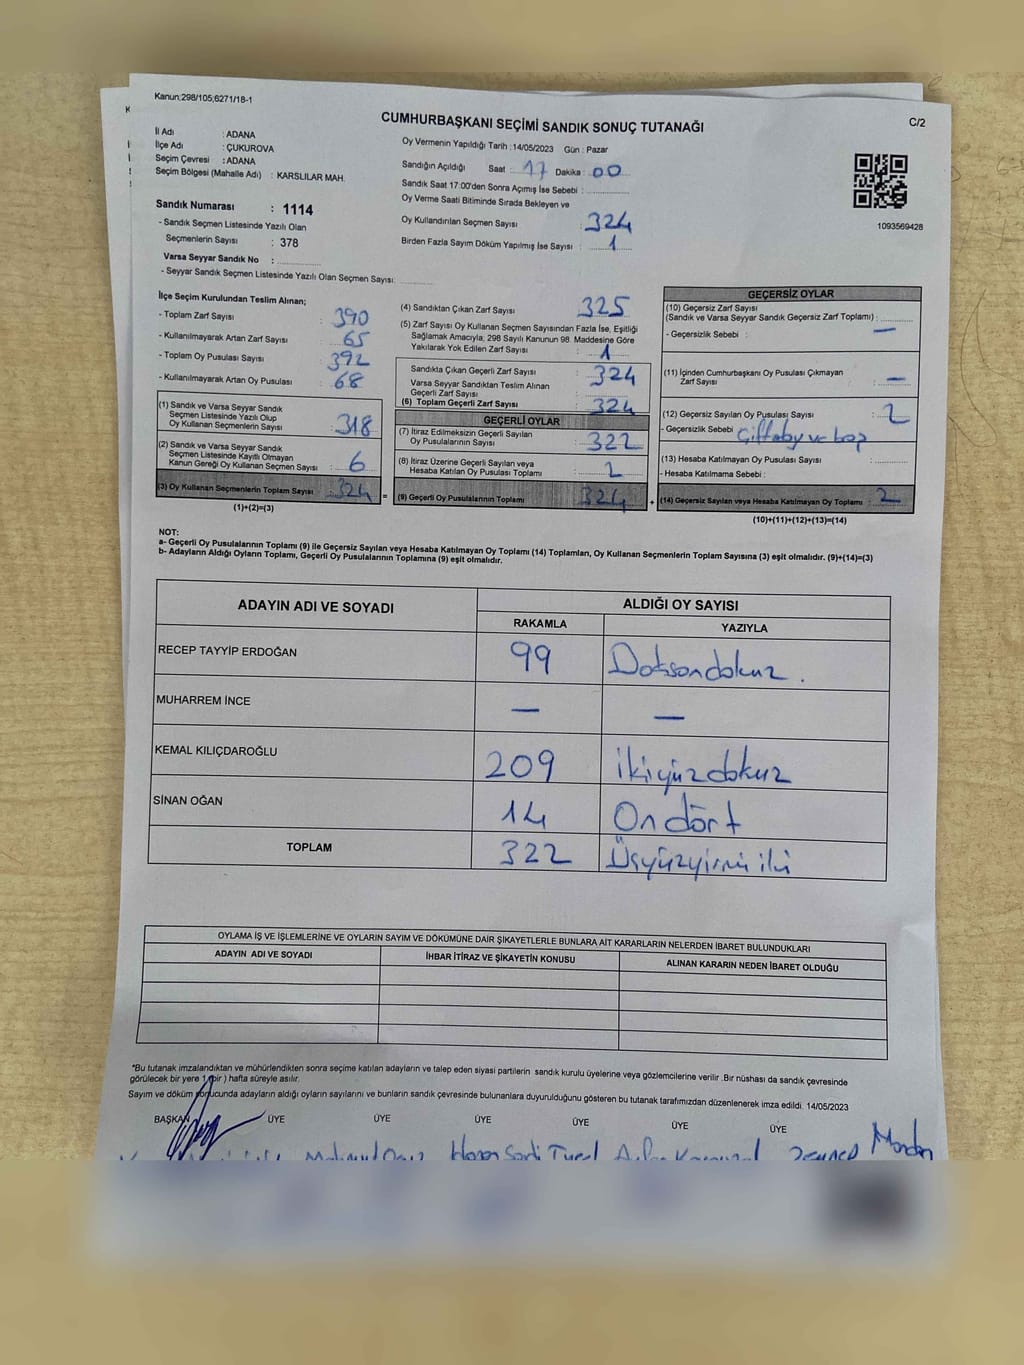 Kanun;298/105;6271/18-1
CUMHURBAŞKANI SEÇİMİ SANDIK SONUÇ TUTANAĞI
C/2
İl Adı : ADANA
İlçe Adı : ÇUKUROVA
Seçim Çevresi : ADANA
Seçim Bölgesi (Mahalle Adı) : KARSLILAR MAH.
Sandık Numarası : 1114
- Sandık Seçmen Listesinde Yazılı Olan
Seçmenlerin Sayısı : 378
Varsa Seyyar Sandık No :
- Seyyar Sandık Seçmen Listesinde Yazılı Olan Seçmen Sayısı:
Oy Vermenin Yapıldığı Tarih :14/05/2023 Gün : Pazar
Sandığın Açıldığı Saat : 17 Dakika : 00
Sandık Saat 17:00'den Sonra Açımış İse Sebebi :
Oy Verme Saati Bitiminde Sırada Bekleyen ve
Oy Kullandırılan Seçmen Sayısı : 324
Birden Fazla Sayım Döküm Yapılmış İse Sayısı : 1
1093569428
İlçe Seçim Kurulundan Teslim Alınan;
- Toplam Zarf Sayısı : 390
- Kullanılmayarak Artan Zarf Sayısı : 65
- Toplam Oy Pusulası Sayısı : 392
- Kullanılmayarak Artan Oy Pusulası : 68
(1) Sandık ve Varsa Seyyar Sandık
Seçmen Listesinde Yazılı Olup
Oy Kullanan Seçmenlerin Sayısı : 318
(2) Sandık ve Varsa Seyyar Sandık
Seçmen Listesinde Kayıtlı Olmayan
Kanun Gereği Oy Kullanan Seçmen Sayısı : 6
(3) Oy Kullanan Seçmenlerin Toplam Sayısı : 324
(1)+(2)=(3)
(4) Sandıktan Çıkan Zarf Sayısı : 325
(5) Zarf Sayısı Oy Kullanan Seçmen Sayısından Fazla İse, Eşitliği
Sağlamak Amacıyla; 298 Sayılı Kanunun 98. Maddesine Göre
Yakılarak Yok Edilen Zarf Sayısı : 1
Sandıkla Çıkan Geçerli Zarf Sayısı : 324
Varsa Seyyar Sandıktan Teslim Alınan
Geçerli Zarf Sayısı
(6) Toplam Geçerli Zarf Sayısı : 324
GEÇERLİ OYLAR
(7) İtiraz Edilmeksizin Geçerli Sayılan
Oy Pusulalarının Sayısı : 322
(8) İtiraz Üzerine Geçerli Sayılan veya
Hesaba Katılan Oy Pusulası Toplamı : 2
= (9) Geçerli Oy Pusulalarının Toplamı : 324
GEÇERSİZ OYLAR
(10) Geçersiz Zarf Sayısı
(Sandık ve Varsa Seyyar Sandık Geçersiz Zarf Toplamı) :
- Geçersizlik Sebebi : —
(11) İçinden Cumhurbaşkanı Oy Pusulası Çıkmayan
Zarf Sayısı : —
(12) Geçersiz Sayılan Oy Pusulası Sayısı : 2
- Geçersizlik Sebebi :
(13) Hesaba Katılmayan Oy Pusulası Sayısı :
- Hesaba Katılmama Sebebi :
+ (14) Geçersiz Sayılan veya Hesaba Katılmayan Oy Toplamı : 2
(10)+(11)+(12)+(13)=(14)
NOT:
a- Geçerli Oy Pusulalarının Toplamı (9) ile Geçersiz Sayılan veya Hesaba Katılmayan Oy Toplamı (14) Toplamları, Oy Kullanan Seçmenlerin Toplam Sayısına (3) eşit olmalıdır. (9)+(14)=(3)
b- Adayların Aldığı Oyların Toplamı, Geçerli Oy Pusulalarının Toplamına (9) eşit olmalıdır.
ADAYIN ADI VE SOYADI ALDIĞI OY SAYISI
RAKAMLA YAZIYLA
RECEP TAYYİP ERDOĞAN 99 Doksandokuz.
MUHARREM İNCE — —
KEMAL KILIÇDAROĞLU 209 İkiyüzdokuz
SİNAN OĞAN 14 Ondört
TOPLAM 322 Üçyüzyirmi iki
OYLAMA İŞ VE İŞLEMLERİNE VE OYLARIN SAYIM VE DÖKÜMÜNE DAİR ŞİKAYETLERLE BUNLARA AİT KARARLARIN NELERDEN İBARET BULUNDUKLARI
ADAYIN ADI VE SOYADI İHBAR İTİRAZ VE ŞİKAYETİN KONUSU ALINAN KARARIN NEDEN İBARET OLDUĞU
*Bu tutanak imzalandıktan ve mühürlendikten sonra seçime katılan adayların ve talep eden siyasi partilerin sandık kurulu üyelerine veya gözlemcilerine verilir .Bir nüshası da sandık çevresinde
görülecek bir yere 1 (bir ) hafta süreyle asılır.
Sayım ve döküm sonucunda adayların aldığı oyların sayılarını ve bunların sandık çevresinde bulunanlara duyurulduğunu gösteren bu tutanak tarafımızdan düzenlenerek imza edildi. 14/05/2023
BAŞKAN ÜYE ÜYE ÜYE ÜYE ÜYE ÜYE